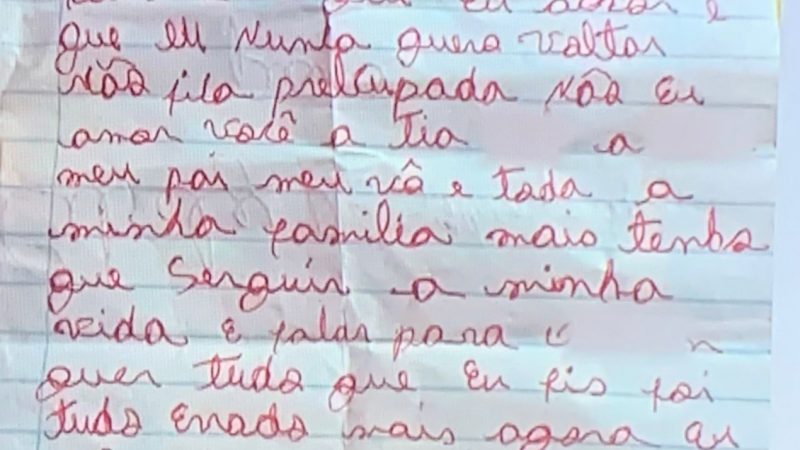 que eu Nunca quero voltar
Não fica preocupada Não Eu
amor você a Tia a
meu pai meu vô e toda a
minha familia mais tenho
que Serguir a minha
vida e falar para
quer tudo que Eu fis foi
tudo errado mais agora eu